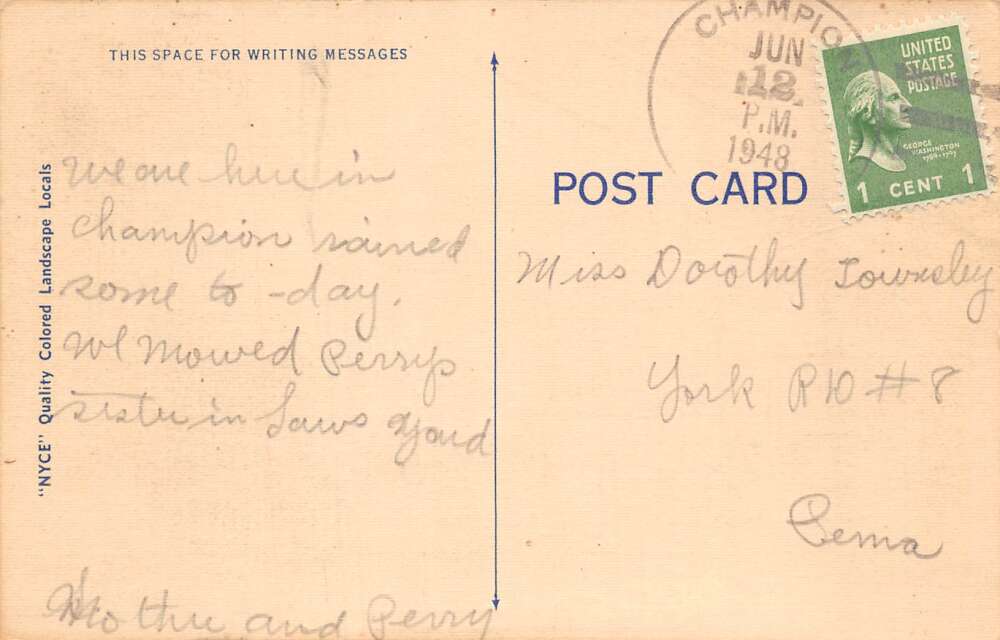 THIS SPACE FOR WRITING MESSAGES
"NYCE" Quality Colored Landscape Locals
We are here in
Champion rained
some to-day.
We mowed Perrys
sister in Laws yard
Mother and Perry
CHAMPION
JUN
12
P.M.
1948
UNITED
STATES
POSTAGE
GEORGE
WASHINGTON
1789-1797
1 CENT 1
POST CARD
Miss Dorothy Townsley
York RD #8
Penna